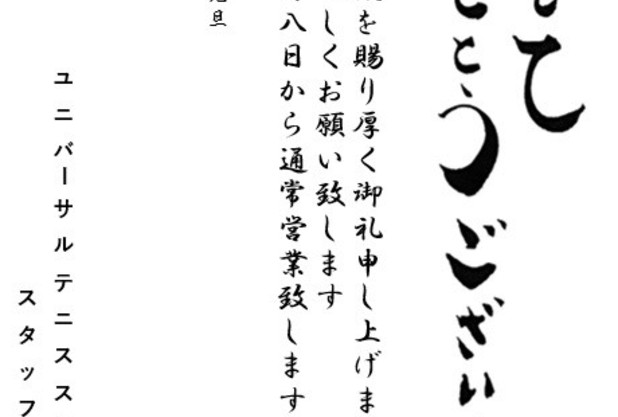 て
とうござい
を賜り厚く御礼申し上げま
しくお願い致します
八日から通常営業致します
旦
ユニバーサルテニスス
スタッフ